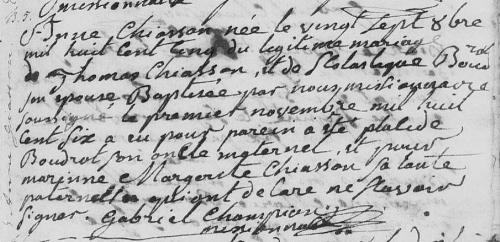 missionnaire
B. 5.
Anne Chiasson née le vingt sept 8bre
mil huit cent cinq du légitime mariage
de Thomas Chiasson, et de Scolastique Boud
rot
son épouse Baptisée par nous missionnaire
soussigné le premier novembre mil huit
Cent Six a eu pour parein a été placide
Boudrot son oncle maternel, et pour
marinne Margerite Chiasson sa tante
paternelle qui ont declare ne scavoir
signer. Gabriel Champion
missionnaire